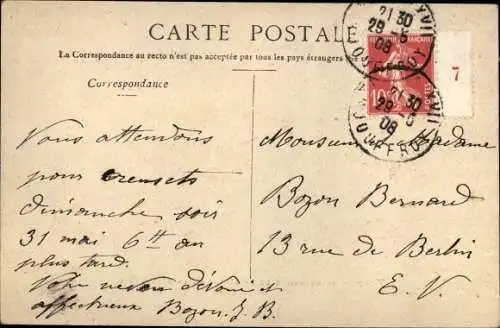 CARTE POSTALE
La Correspondance au recto n'est pas acceptée par tous les pays étrangers
Correspondance
21 30
29 -5
08
7
21 30
29 -5
08
10
Vous attendons
pour
dimanche soir
31 mai 6 h au
plus tard.
Votre neveu dévoué et
affectueux Bozon. J. B.
Monsieur Madame
Bozon Bernard
13 rue de Berlin
E. V.